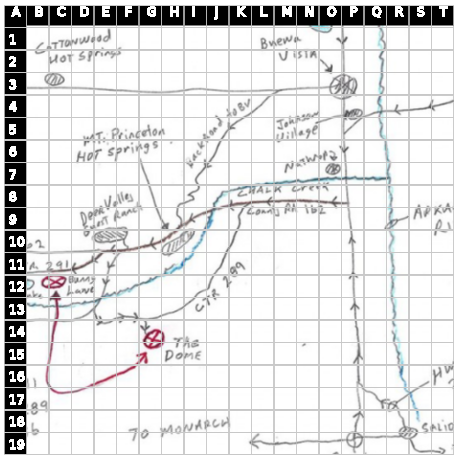 A B C D E F G H I J K L M N O P Q R S T
1
2
3
4
5
6
7
8
9
10
11
12
13
14
15
16
17
18
19
COTTONWOOD
HOT SPRINGS
Buena
VISTA
Johnson
Village
MT. Princeton
HOT Springs
Nathrop
CHALK Creek
County Rd 162
Deer Valley
Guest Ranch
ARKA
RI
02
R 291
Bunny
Lane
ake
CTR 299
TAG
DOME
HW
11
89
6
TO MONARCH
SALID